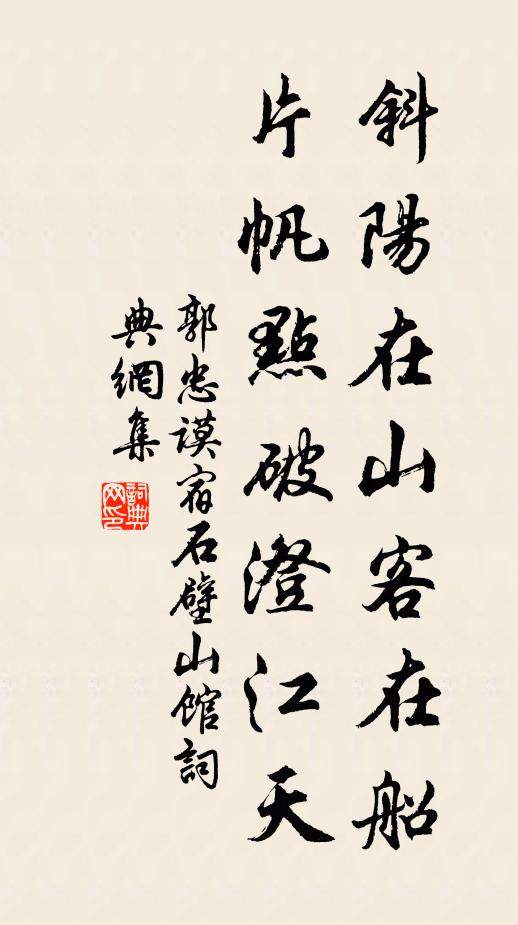 斜陽在山客在船
片帆點破澄江天
郭忠謨宿石壁山館詞
典網集
詞典
网印